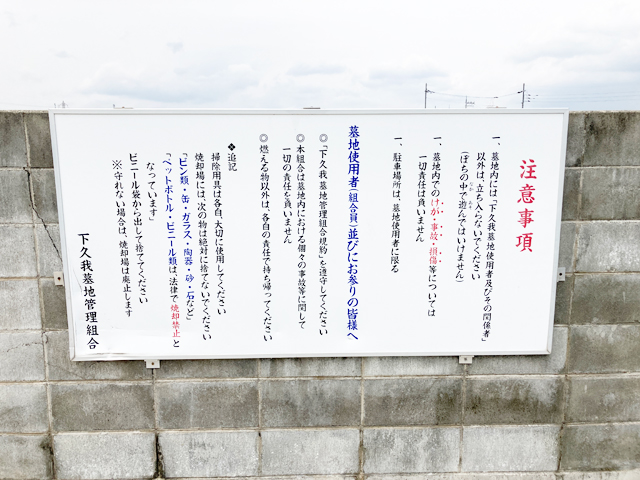 注意事項
一、墓地内には「下久我墓地使用者及びその関係者」
以外は、立ち入らないでください
(ぼちの中で遊んではいけません)
一、墓地内でのけが・事故・損傷等については
一切責任は負いません
一、駐車場所は、墓地使用者に限る
墓地使用者(組合員)並びにお参りの皆様へ
◎「下久我墓地管理組合規約」を遵守してください
◎本組合は墓地内における個々の事故等に関して
一切の責任を負いません
◎燃える物以外は、各自の責任で持ち帰ってください
❖追記
掃除用具は各自、大切に使用してください
焼却場には、次の物は絶対に捨てないでください
「ビン類・缶・ガラス・陶器・砂・石など」
「ペットボトル・ビニール類は、法律で焼却禁止と
なっています」
ビニール袋から出して捨ててください
※守れない場合は、焼却場は廃止します
下久我墓地管理組合